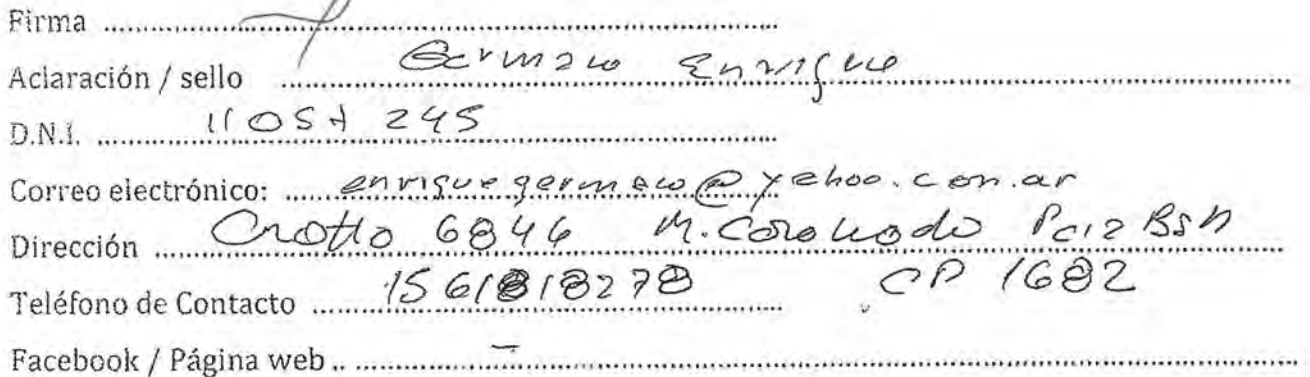 Firma
Aclaración / sello Germano Enrique
D.N.I. 11057245
Correo electrónico: enriquegermano@yahoo.com.ar
Dirección Crotto 6846 M. Coronado Pciz BsA
Teléfono de Contacto 1561818278 CP 1682
Facebook / Página web .. –